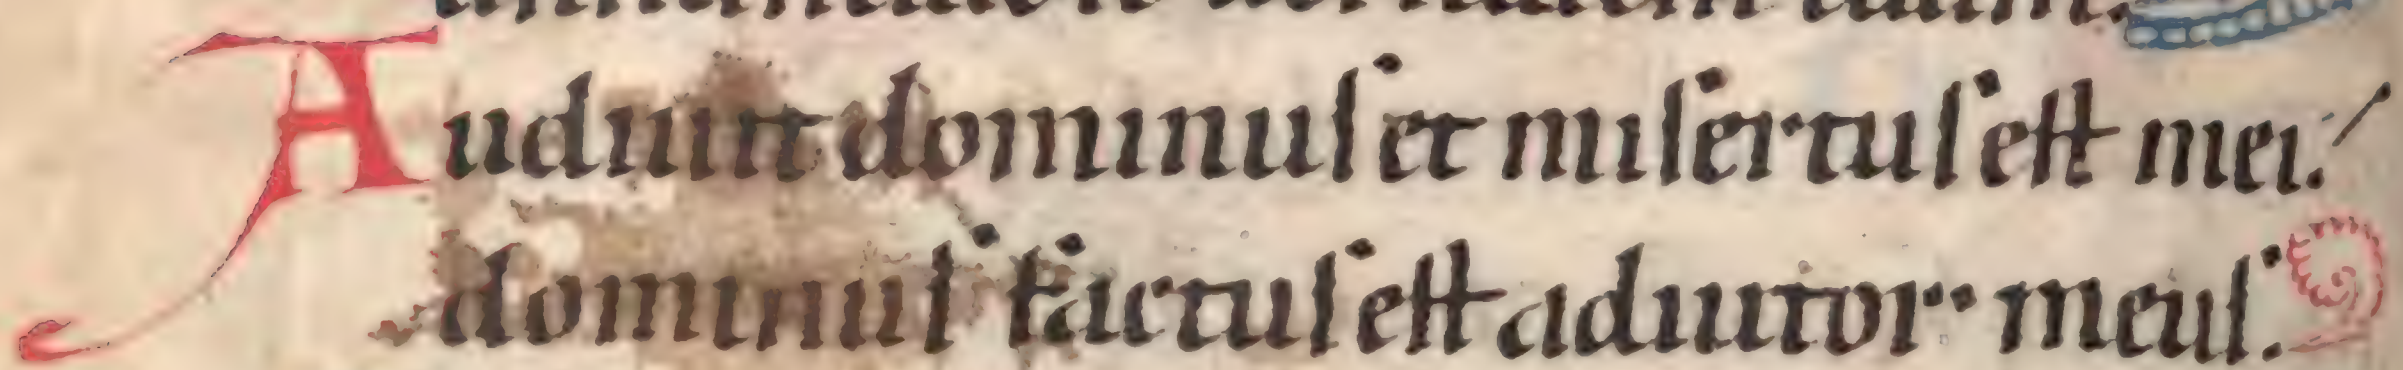 Audiuit dominuſ et miſertuſ eſt mei.
dominuſ factuſ eſt adiutor meuſ.